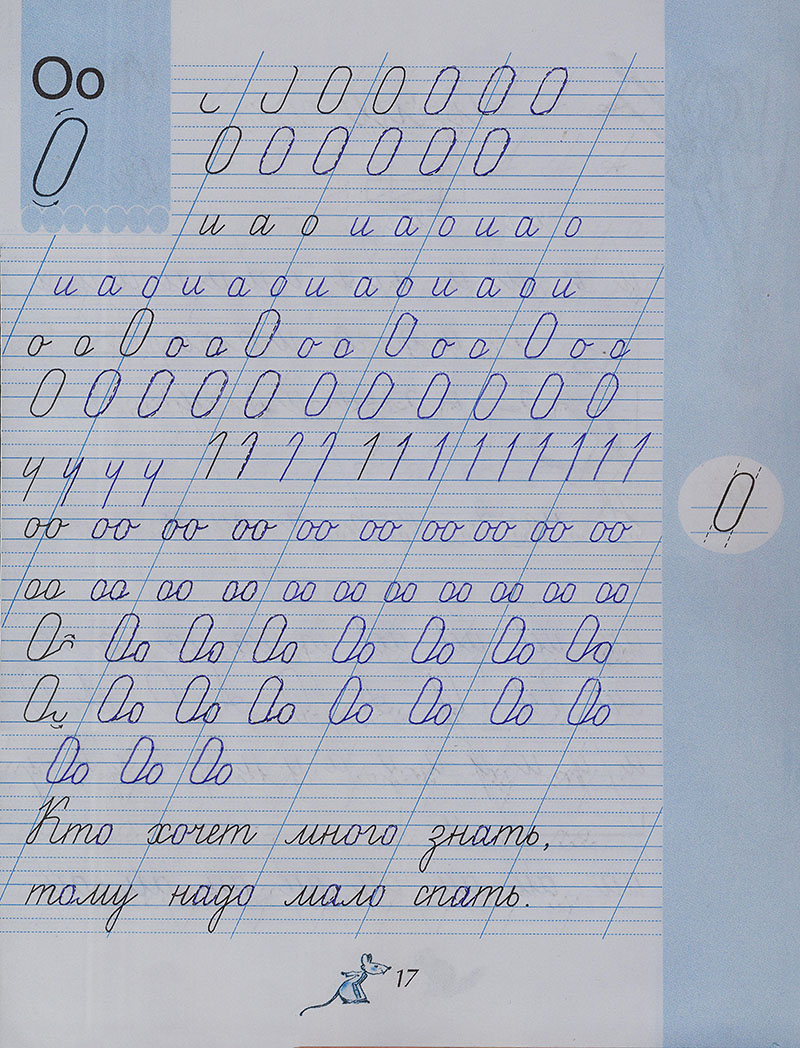 Оо
О
О О О О О
О О О О О О
и а о и а о и а о
и а о и а о и а о и а о и
о а О о а О о а О о а О о а
О О О О О О О О О О О
у у у у 1 1 1 1 1 1 1 1 1 1 1 1 1
оо оо оо оо оо оо оо оо оо оо
оа оа оо оо оо оо оо оо оо оо оо
О Оо Оо Оо Оо Оо Оо Оо
О Оо Оо Оо Оо Оо Оо Оо
Оо Оо Оо
О
Кто хочет много знать,
тому надо мало спать.
17